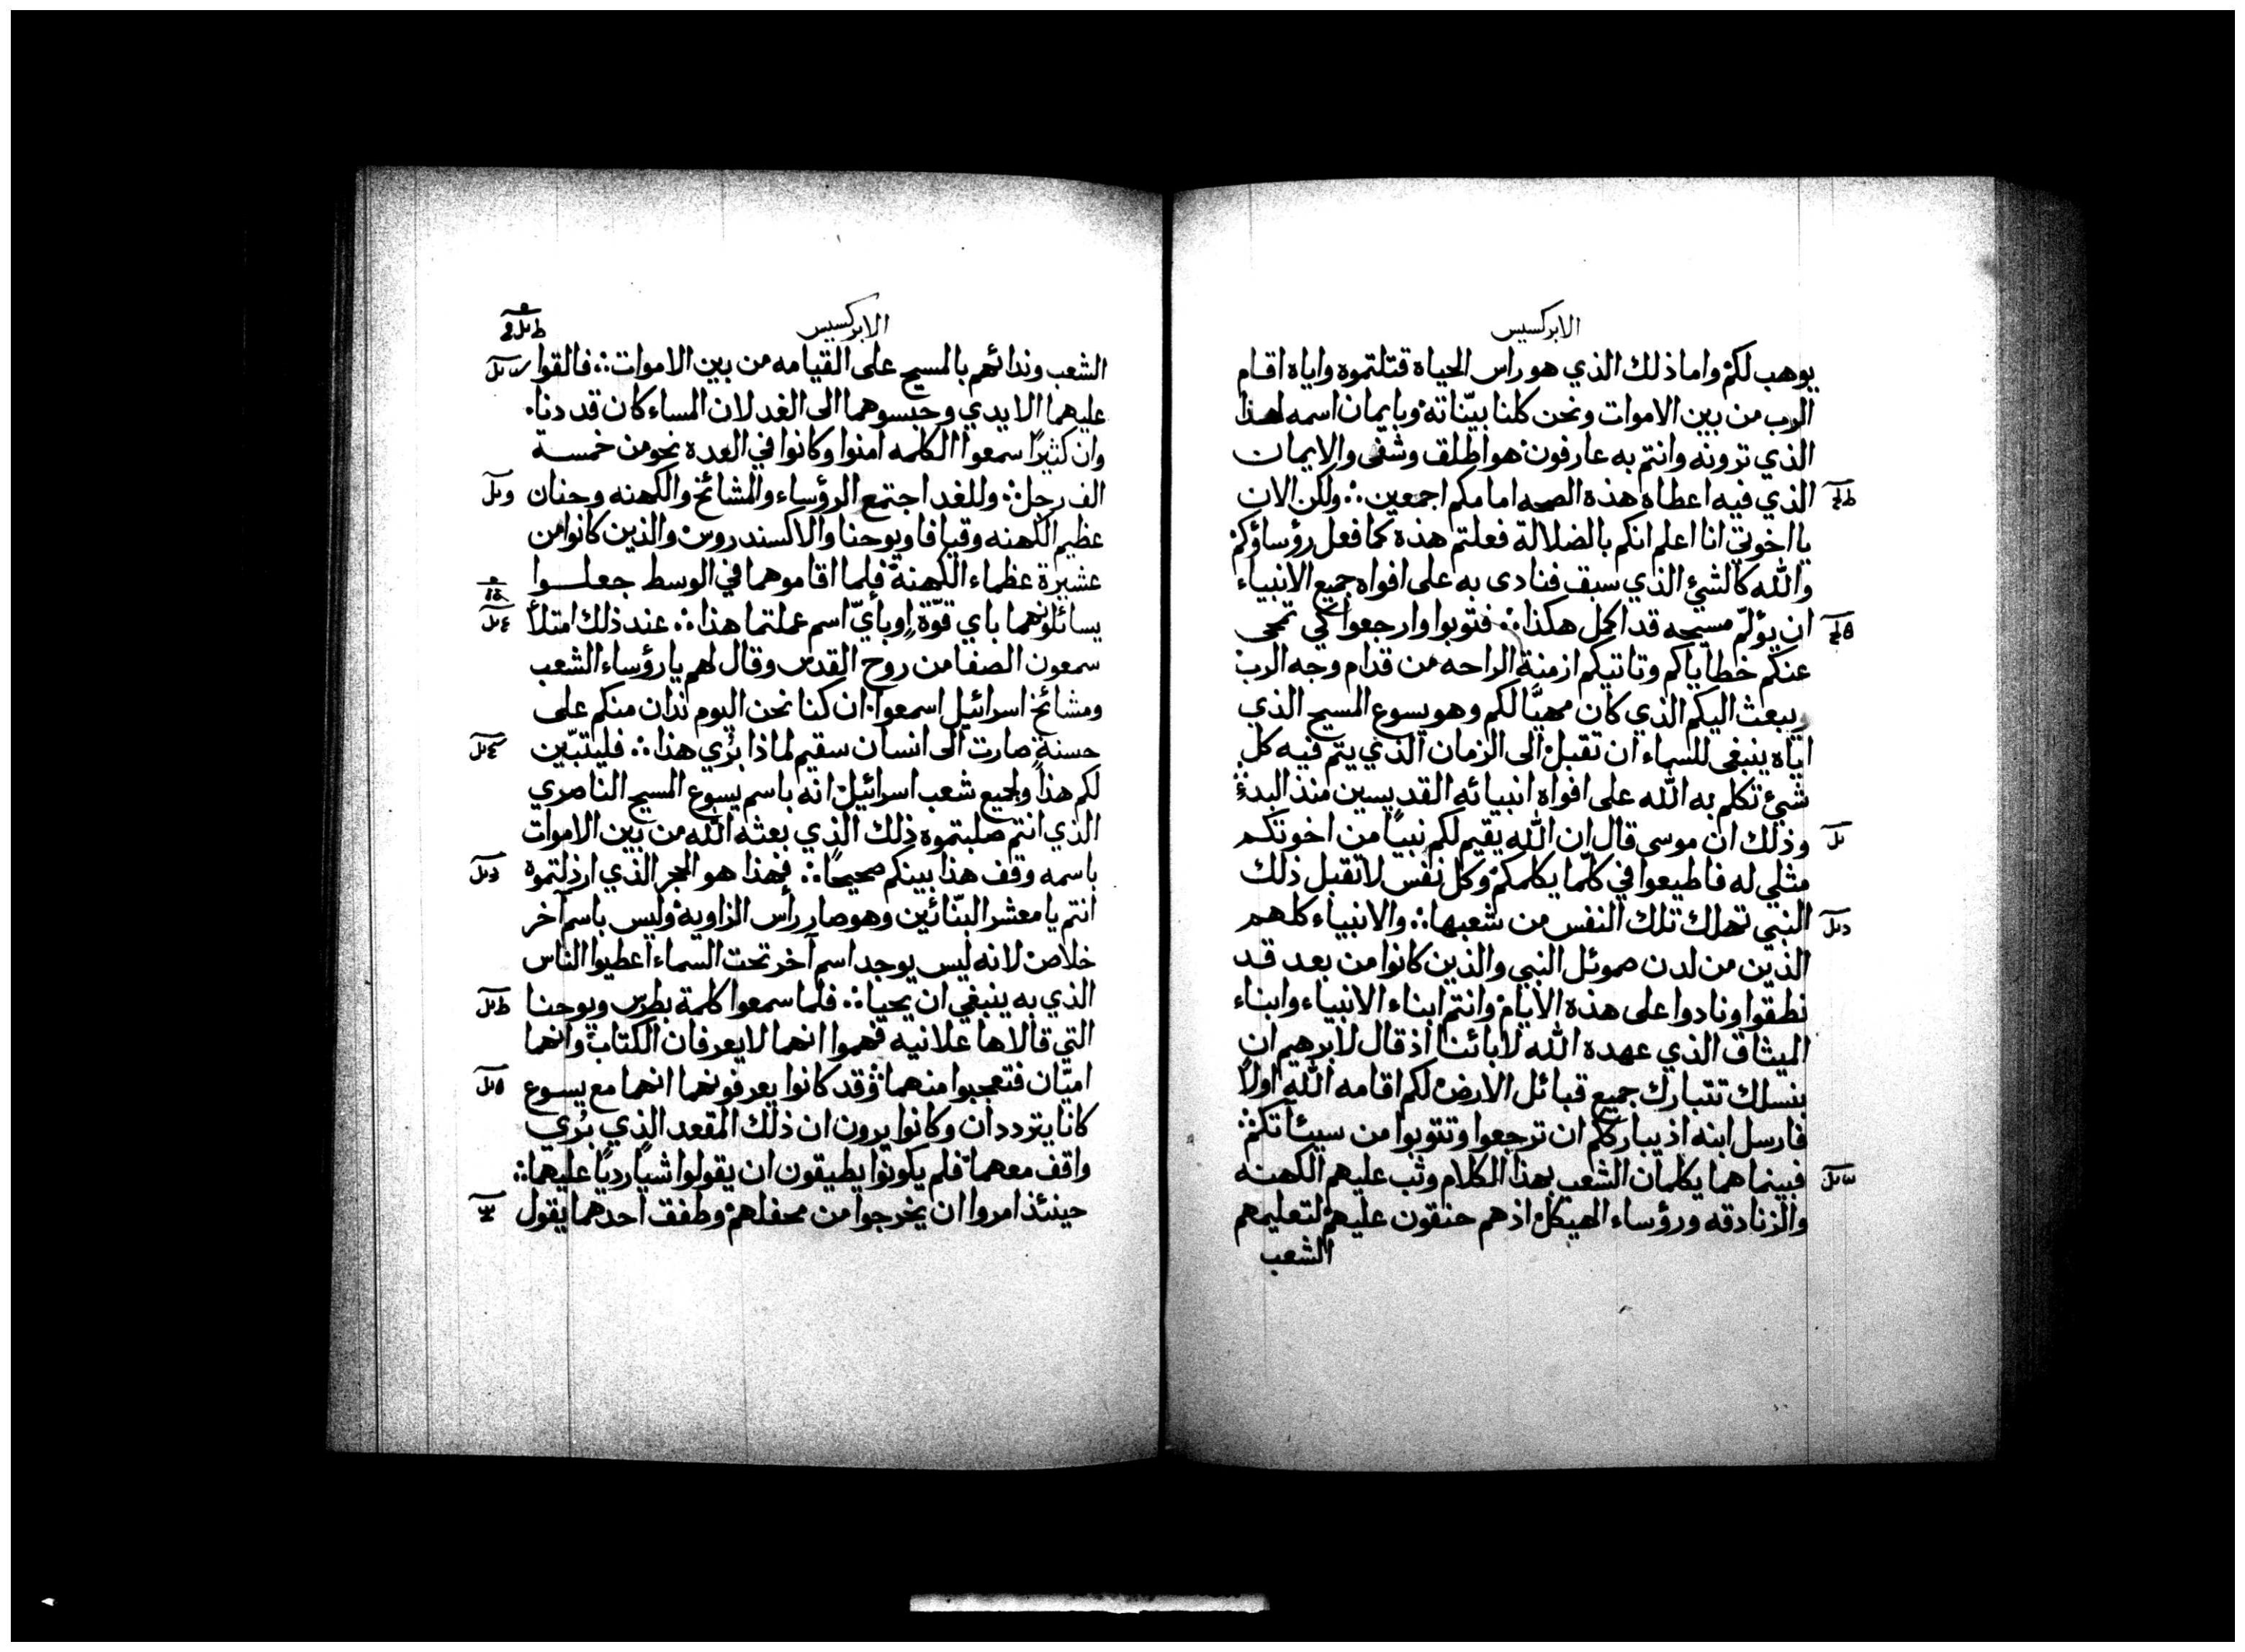 الابركسيس
يوهب لكم واما ذلك الذي هو راس الحياه قتلتموه واياه اقام
الرب من بين الاموات ونحن كلنا بيّناته وبايمان اسمه لهذا
الذي ترونه وانتم به عارفون هو اطلق وشفى والايمان
الذي فيه اعطاه هذه الصحه امامكم اجمعين ولكن الان
يا اخوتي انا اعلم انكم بالضلالة فعلتم هذه كما فعل رؤساؤكم
والله كالشئ الذي سبق فنادى به على افواه جميع الانبياء
ان يؤلم مسيحه قد اكمل هكذا فتوبوا وارجعوا كي تمحى
عنكم خطاياكم وتاتيكم ازمنة الراحه من قدام وجه الرب
ويبعث اليكم الذي كان مهيّا لكم وهو يسوع المسيح الذي
اياه ينبغى للسماء ان تقبل الى الزمان الذي يتم فيه كل
شئ تكلم به الله على افواه انبيائه القديسين منذ البدئ
وذلك ان موسى قال ان الله يقيم لكم نبيًا من اخوتكم
مثلي له فاطيعوا في كلّما يكلمكم وكل نفس لا تقبل ذلك
النبي تهلك تلك النفس من شعبها والانبياء كلهم
الذين من لدن صموئل النبي والذين كانوا من بعد قد
نطقوا ونادوا على هذه الايام وانتم ابناء الانبياء وابناء
الميثاق الذي عهده الله لابائنا اذ قال لابرهيم ان
بنسلك تتبارك جميع قبائل الارض لكم اقامه الله اولًا
فارسل ابنه اذ يبارككم ان ترجعوا وتتوبوا من سيئآتكم
فبينما هما يكلمان الشعب بهذا الكلام وثب عليهم الكهنه
والزنادقه ورؤساء الهيكل اذ هم حنقون عليهم لتعليمهم
الشعب
الابركسيس
الشعب وندائهم بالمسيح على القيامه من بين الاموات فالقوا
عليهما الايدي وحبسوهما الى الغد لان المساء كان قد دنا
وان كثيرًا سمعوا الكلمه امنوا وكانوا في العده نحو من خمسة
الف رجل وللغد اجتمع الرؤساء والمشائخ والكهنه وحنان
عظيم الكهنه وقيافا ويوحنا والاكسندروس والذين كانوا من
عشيرة عظماء الكهنة فلما اقاموهما في الوسط جعلوا
يسائلونهما باي قوّة او بأيّ اسم عملتما هذا عند ذلك امتلأ
سمعون الصفا من روح القدس وقال لهم يا رؤساء الشعب
ومشائخ اسرائيل اسمعوا ان كنا نحن اليوم ندان منكم على
حسنة صارت الى انسان سقيم لماذا بُري هذا فليتبيّن
لكم هذا ولجميع شعب اسرائيل انه باسم يسوع المسيح الناصري
الذي انتم صلبتموه ذلك الذي بعثه الله من بين الاموات
باسمه وقف هذا بينكم صحيحًا فهذا هو الحجر الذي ارذلتموه
انتم يا معشر البنّائين وهو صار رأس الزاوية وليس باسم آخر
خلاص لانه ليس يوجد اسم آخر تحت السماء اعطيوا الناس
الذي به ينبغي ان يحيا فلما سمعوا كلمة بطرس ويوحنا
التي قالاها علانيه فهموا انهما لا يعرفان الكتاب وانهما
اميّان فتعجبوا منهما وقد كانوا يعرفونهما انهما مع يسوع
كانا يترددان وكانوا يرون ان ذلك المقعد الذي بُري
واقف معهما فلم يكونوا يطيقون ان يقولوا شيا رديًا عليهما
حينئذ امروا ان يخرجوا من محفلهم وطفق احدهما يقول